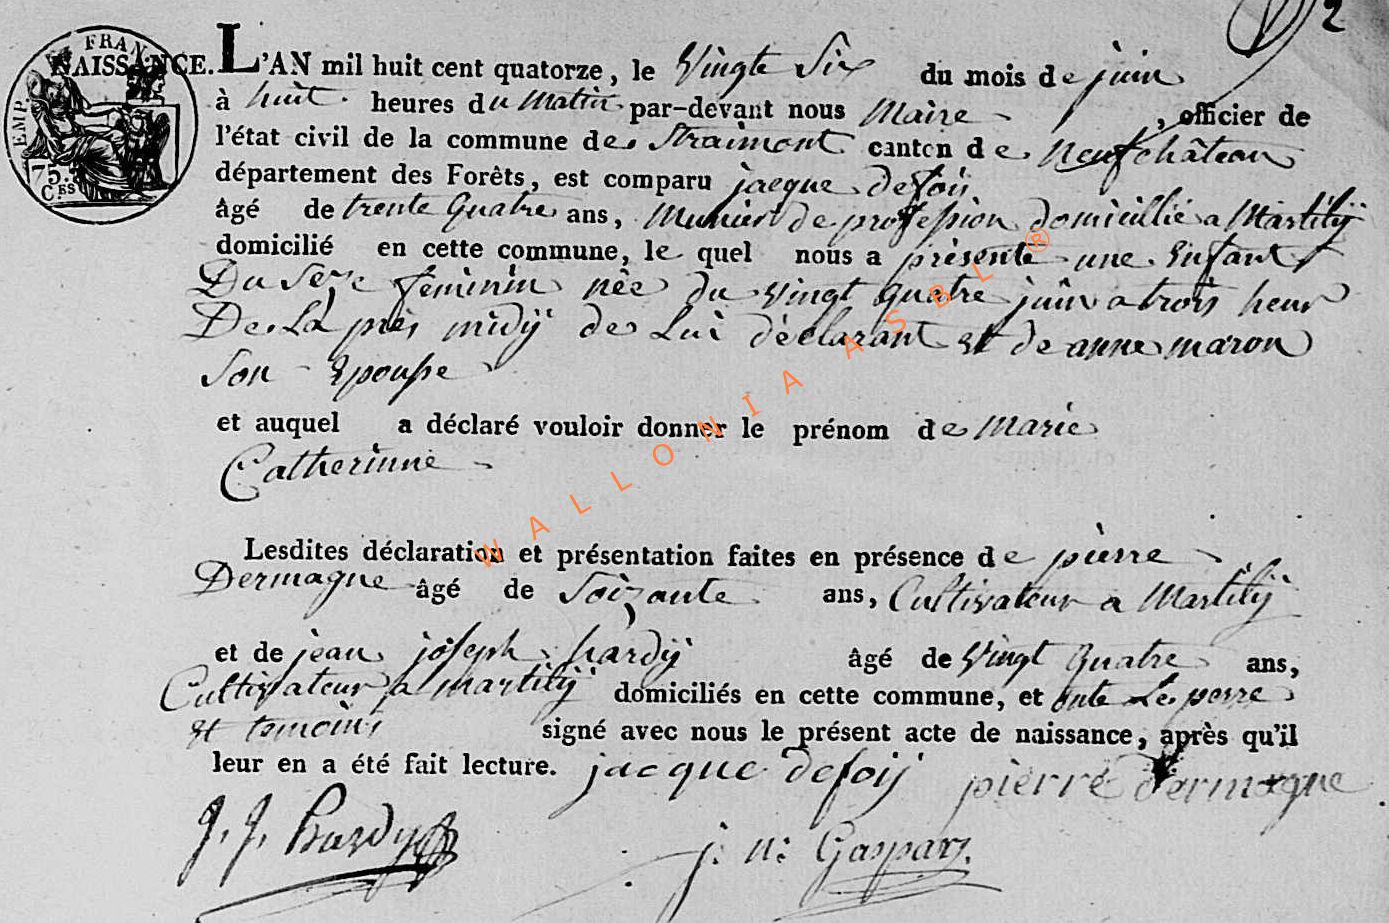 2
FRAN
EMP.
75.
C.ES
NAISSANCE. L'AN mil huit cent quatorze, le Vingte Six du mois de juin
à huit heures du Matin par-devant nous Maire, officier de
l'état civil de la commune de Straimont canton de Neufchâteau
département des Forêts, est comparu jacque defoij
âgé de trente Quatre ans, Munier de profession domicillié a Martilij
domicilié en cette commune, le quel nous a présente une Enfant
Du Sexe féminin née du vingt quatre juin a trois heur
De La près midij de Lui déclarant et de anne maron
Son Epouse
et auquel a déclaré vouloir donner le prénom de Marie
Catherinne
Lesdites déclaration et présentation faites en présence de pierre
Dermagne âgé de Soixante ans, Cultivateur a Martilij
et de jean joseph hardij âgé de Vingt Quatre ans,
Cultivateur a martilij domiciliés en cette commune, et onte Le perre
et temoins signé avec nous le présent acte de naissance, après qu'il
leur en a été fait lecture. jacque defoij pierre dermagne
J. J. Hardy
j. n: Gaspars
WALLONIA ASBL ®